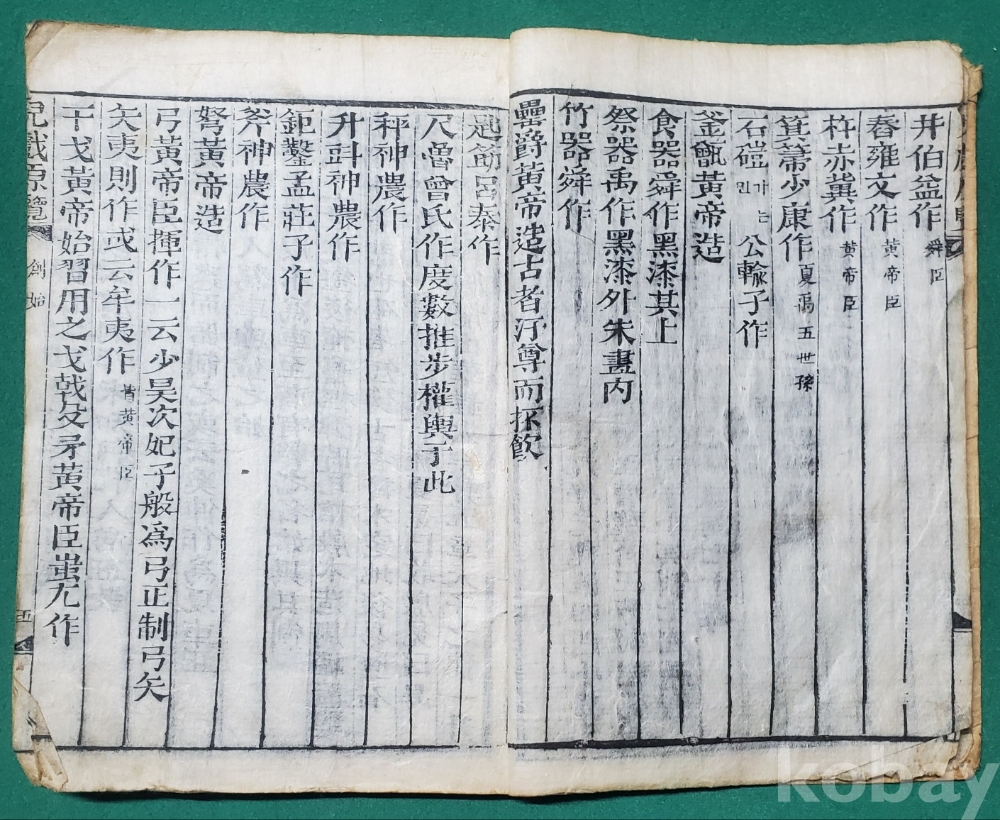 井伯益作 舜臣
舂雍文作 黃帝臣
杵赤冀作 黃帝臣
箕箒少康作 夏禹五世孫
石磑 公輸子作
釜甑黃帝造
食器舜作黑漆其上
祭器禹作黑漆外朱畫內
竹器舜作
罍爵黃帝造古者汙尊而抔飮
匙筯呂泰作
尺魯曾氏作度數推步權輿于此
秤神農作
升斗神農作
鉅鑿孟莊子作
斧神農作
弩黃帝造
弓黃帝臣揮作一云少昊次妃子般爲弓正制弓矢
矢夷則作或云牟夷作 皆黃帝臣
干戈黃帝始習用之戈戟殳矛黃帝臣蚩尤作
兒戱原覽 創始 五
kobay